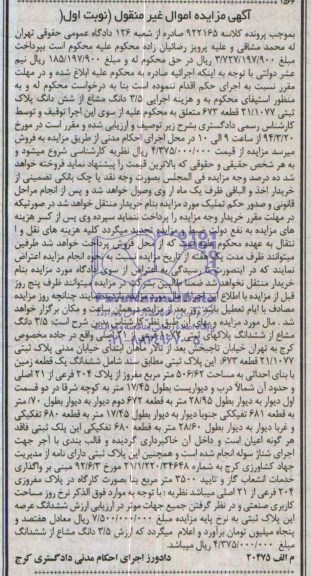 آگهی مزایده اموال غیر منقول (نوبت اول)
بموجب پرونده کلاسه ۹۲۲۱۶۵ صادره از شعبه ۱۲۶ دادگاه عمومی حقوقی تهران
له محمد مشاقی و علیه پرویز رضائیان زاده محکوم علیه محکوم است بپرداخت
مبلغ ۳/۷۲۷/۱۹۷/۹۰۰ ریال در حق محکوم له و مبلغ ۱۸۵/۱۹۷/۹۰۰ ریال نیم
عشر دولتی با توجه به اینکه اجرائیه صادره به محکوم علیه ابلاغ شده و در مهلت
مقرر نسبت به اجرای حکم اقدام ننموده است بنا به درخواست محکوم له و به
منظور استیفای محکوم به و هزینه اجرایی ۳/۵ دانگ مشاع از شش دانگ پلاک
ثبتی ۲۱/۱۰۷۷ قطعه ۶۷۳ متعلق به محکوم علیه از سوی این اجرا توقیف و توسط
کارشناس رسمی دادگستری بشرح زیر توصیف و ارزیابی شده و مقرر است در مورخ
۹۴/۳/۲۰ از ساعت ۹ الی ۱۰ در محل اجرای احکام مدنی از طریق مزایده به فروش
میرسد مزایده از قیمت ۴/۳۷۵/۰۰۰/۰۰۰ ریال نظریه کارشناسی شروع میشود و
به هر شخص حقیقی و حقوقی که بالاترین قیمت را پیشنهاد نماید فروخته خواهد
شد ده درصد وجه مزایده فی المجلس بصورت وجه نقد یا چک بانکی تضمینی از
خریدار اخذ و الباقی ظرف یک ماه از وی وصول خواهد شد و پس از انجام مراحل
قانونی و صدور حکم تملیک مورد مزایده بنام خریدار منتقل خواهد شد در صورتیکه
در مهلت مقرر خریدار وجه مزایده را پرداخت ننماید سپرده وی پس از کسر هزینه
های مزایده به نفع دولت ضبط و مزایده تجدید میگردد کلیه هزینه های نقل و ا
نتقال به عهده محکوم علیه میباشد که از محل فروش پرداخت خواهد شد طرفین
میتوانند ظرف مدت یک هفته از تاریخ مزایده نسبت به نحوه انجام مزایده اعتراض
نمایند که در اینصورت پس از رسیدگی به اعتراض از سوی دادگاه مورد مزایده بنام
خریدار منتقل خواهد شد ضمنا طالبین شرکت در مزایده میتوانند ظرف پنج روز
قبل از مزایده با اطلاع این اجرا از مورد مزایده بازدید نمایند چنانچه روز مزایده
مصادف با ایام تعطیل باشد روز بعد از مزایده در همان ساعت و مکان برگزار خواهد
شد . مال مورد مزایده و اوصاف آن طبق نظر کارشناس بدین شرح است: ۳/۵ دانگ
مشاع از ششدانگ پلاکهای ثبتی ۲۰۴ فرعی از ۲۱ اصلی واقع در جاده مخصوص
کرج به تهران خیابان تاجبخش بعد از تالار ماهان انتهای خیابان مدنی پلاک ثبتی
۲۱/۱۰۷۷ قطعه ۶۷۳: این پلاک ثبتی مطابق سند شامل ششدانگ یک قطعه زمین
با بنای احداثی به مساحت ۵۰۶/۶۲ متر مربع مفروز از پلاک ۲۰۴ فرعی از ۲۱ اصلی
و حدود آن شمالاً درب و دیواریست بطول ۱۷/۴۵ متر به کوچه شرقا در دو قسمت
اول دیوار به دیوار بطول ۲۸/۹۵ متر به قطعه ۶۷۲ دوم دیوار به دیوار بطول ۷۰/ متر
به قطعه ۶۸۱ تفکیکی جنوبا دیوار به دیوار بطول ۱۷/۴۵ متر به قطعه ۶۸۰ تفکیکی
و غربا دیوار به دیوار بطول ۲۸/۶۰ متر به قطعه ۶۸۰ تفکیکی این پلک ثبتی فاقد
هر گونه اعیان است و داخل آن خاکبرداری گردیده و قالب بندی با آجر جهت
اجرای شناژ سوله انجام شده است و همچنین این پلاک ثبتی دارای نامه از مدیریت
جهاد کشاورزی کرج به شماره ۲۱/۱/۲۲۰/۳۴۶۴۸ مورخ ۹۲/۶/۳ مبنی بر واگذاری
خدمات انشعاب گاز و تایید ۳۵۰۰ متر مربع بنا بصورت کارگاه در پلاک مفروزی
۲۰۴ فرعی از ۲۱ اصلی میباشد نظریه : با توجه به موارد فوق الذکر نرخ روز مساحت
کاربری صنعتی و در نظر گرفتن جمیع جهات موثر در ارزیابی ارزش ششدانگ عرصه
این پلاک ثبتی به نرخ پایه مزایده مبلغ ۷/۵۰۰/۰۰۰/۰۰۰ ریال معادل هفتصد و
پنجاه میلیون تومان برآورد و اعلام میگردد که ارزش ۳/۵ دانگ مشاع از ششدانگ
مبلغ ۴/۳۷۵/۰۰۰/۰۰۰ ریال میباشد.
م الف ۲۰۴۷۵ دادورز اجرای احکام مدنی دادگستری کرج